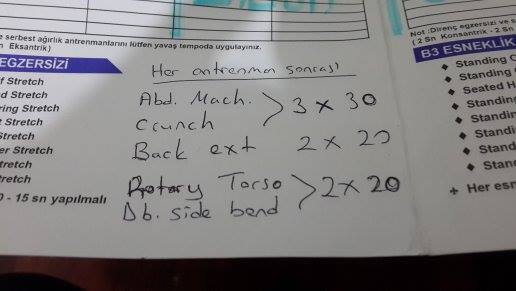 e serbest ağırlık antrenmanlarını lütfen yavaş tempoda uygulayınız.
n Eksantrik)
EGZERSİZİ
f Stretch
d Stretch
ring Stretch
t Stretch
Stretch
er Stretch
tretch
tretch
0 - 15 sn yapılmalı
Her antrenman sonrası
Abd. Mach.
Crunch
> 3 x 30
Back ext 2 x 20
Rotary Torso
Db. side bend
> 2 x 20
Not :Direnç egzersizi ve s
( 2 Sn Konsantrik - 2 Sn
B3 ESNEKLİK
Standing C
Standing
Seated H
Standing
Standin
Standi
Stand
Stan
+ Her esn